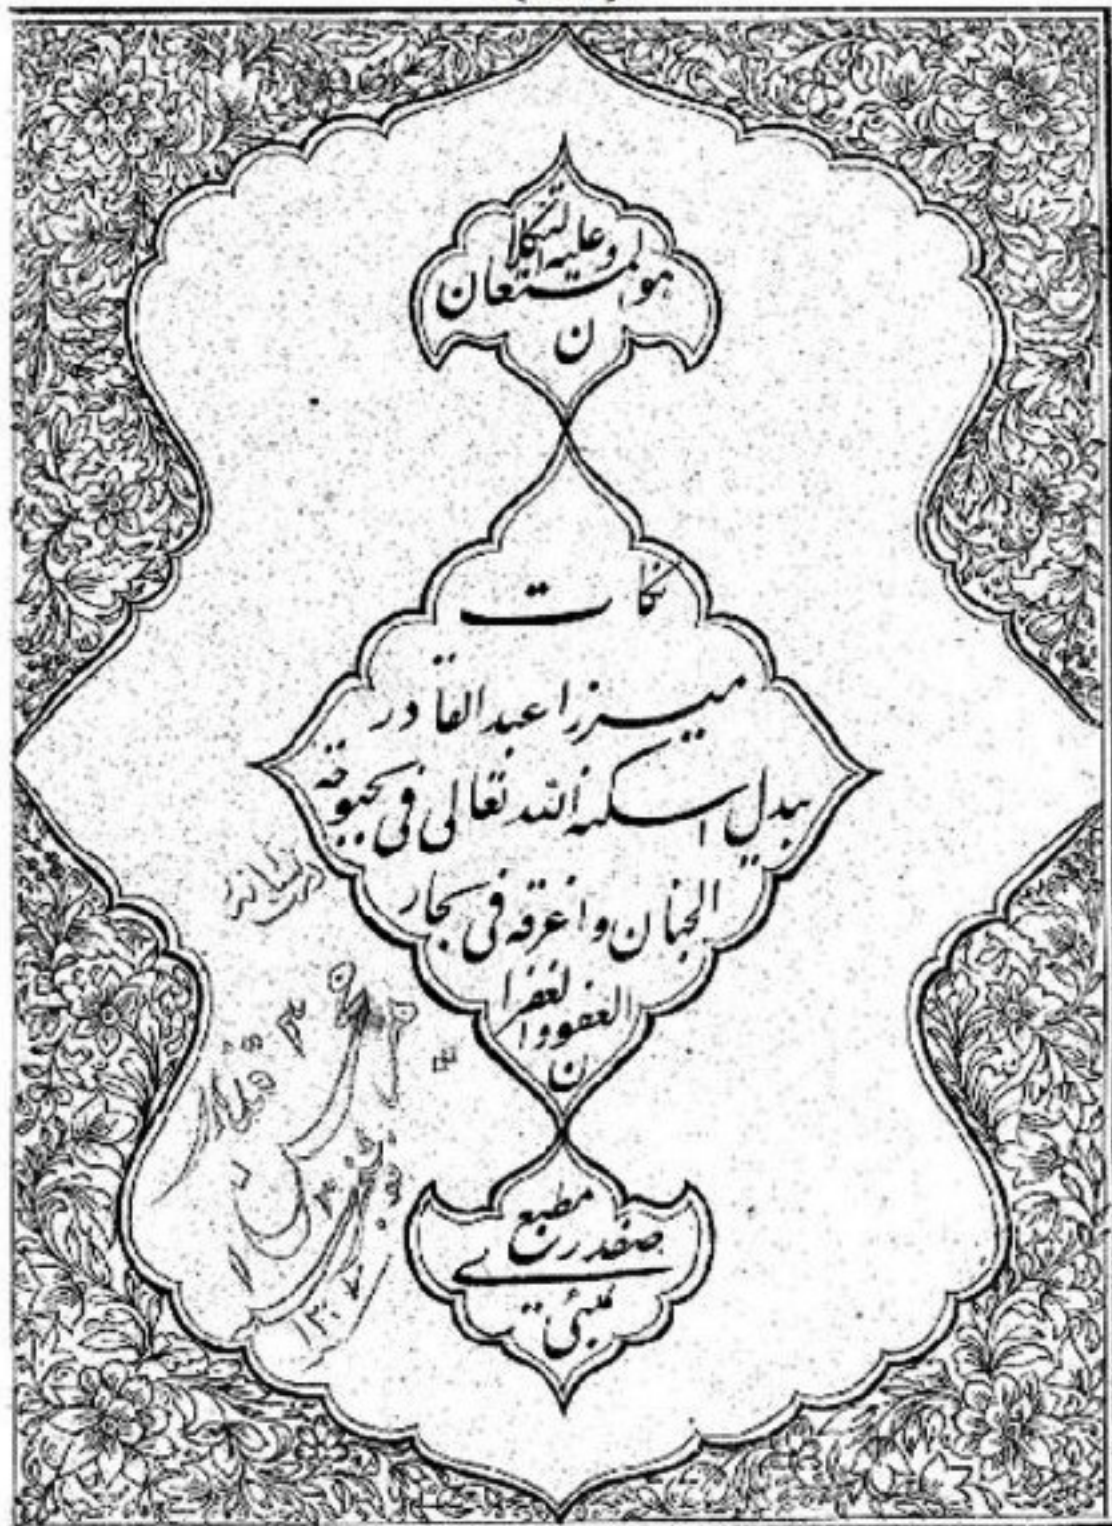 هو المستعان
وعلیه التکلان
نکات
میرزا عبدالقادر
بیدل اسکنه الله تعالی فی بحبوحة
الجنان و اغرقه فی بحار
العفو والغفران
مطبع
صفدری
بمبئی
۱۳۰۷